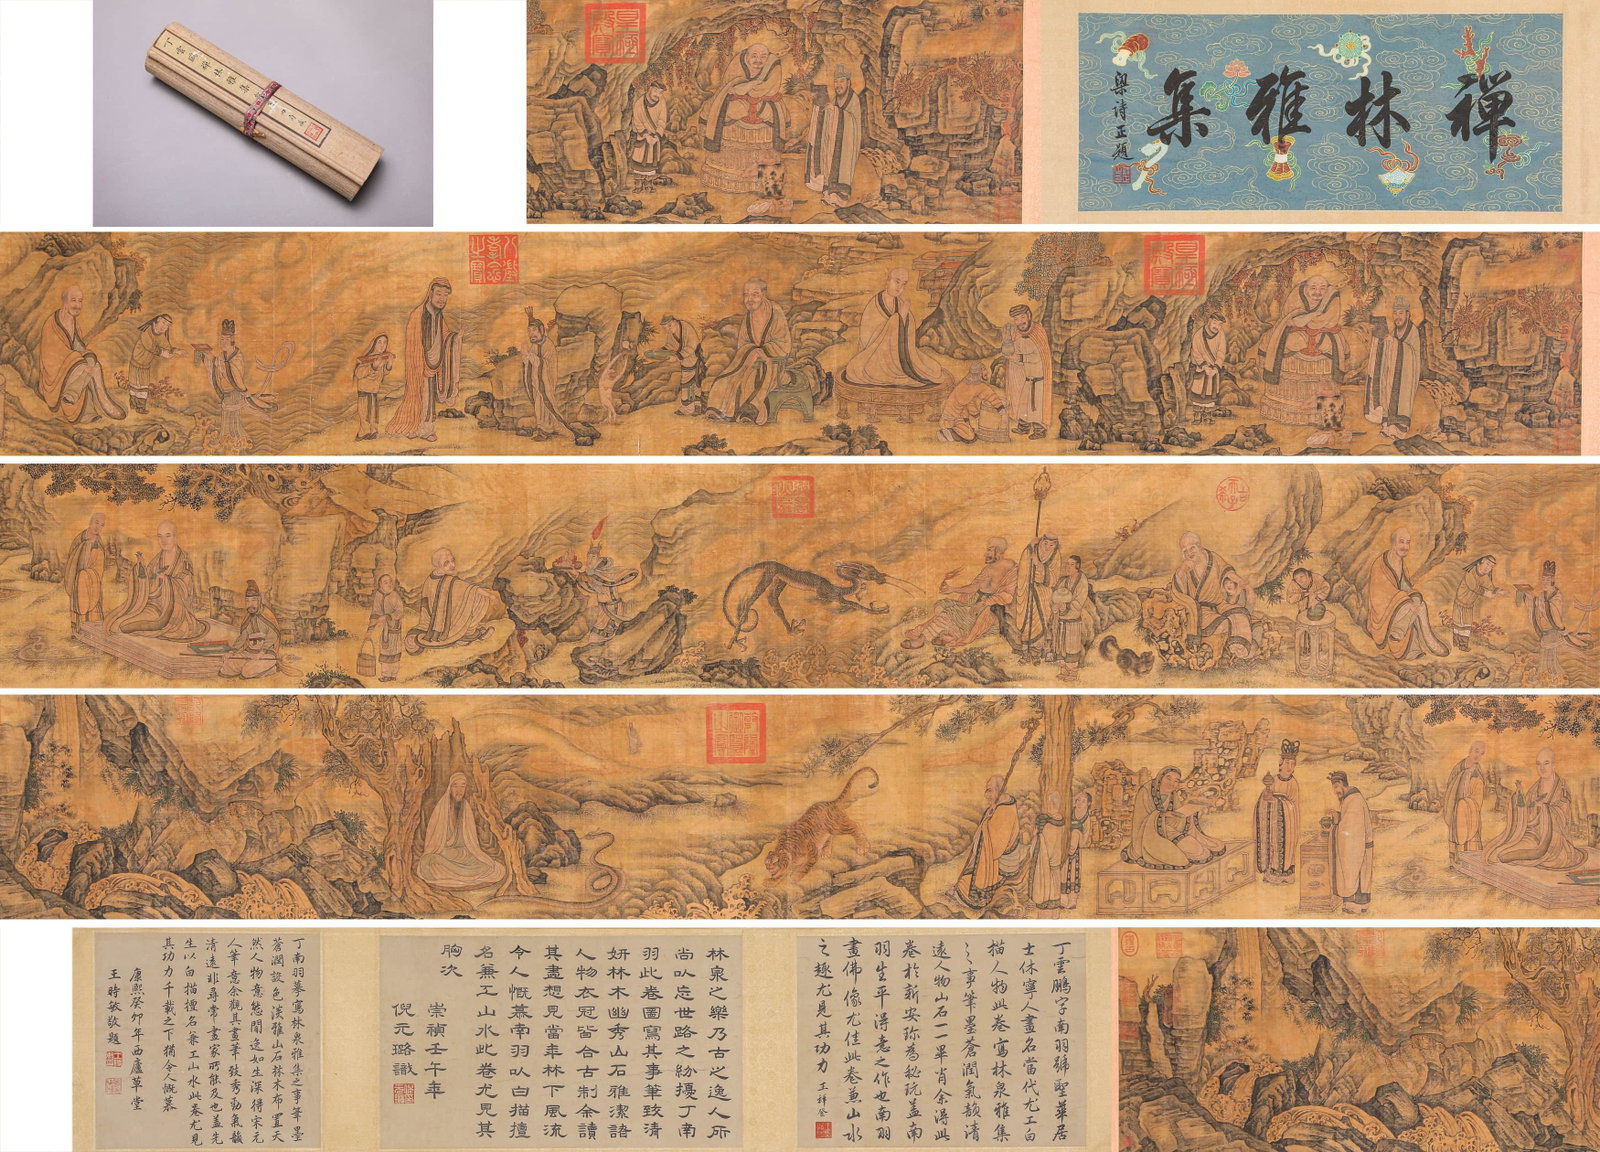 禅林雅集
梁诗正題
丁雲鵬字南羽號聖華居
士休寧人畫名當代尤工白
描人物此卷寫林泉雅集
之事筆墨蒼潤氣韻清
遠人物山石一一畢肖余得此
卷於新安珍為秘玩蓋南
羽生平得意之作也南羽
畫佛像尤佳此卷兼山水
之趣尤見其功力
林泉之樂乃古之逸人所
尚以忘世路之紛擾丁南
羽此卷圖寫其事筆致清
妍林木幽秀山石雅潔諸
人物衣冠皆合古制余讀
其畫想見當年林下風流
令人慨慕南羽以白描擅
名兼工山水此卷尤見其
胸次
崇禎壬午年
倪元璐識
丁南羽摹寫林泉雅集之事筆墨
蒼潤設色淡雅山石林木布置天
然人物意態閒逸如生深得宋元
人筆意余觀其畫筆致秀勁氣韻
清遠非尋常畫家所能及也蓋先
生以白描擅名兼工山水此卷尤見
其功力千載之下猶令人慨慕
康熙癸卯年西廬草堂
王時敏敬題